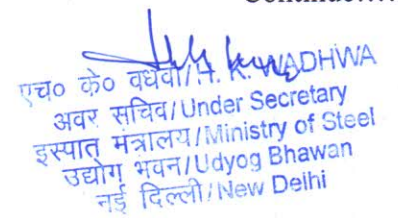 Continue....
एच० के० वधवा/H. K. WADHWA
अवर सचिव/Under Secretary
इस्पात मंत्रालय/Ministry of Steel
उद्योग भवन/Udyog Bhawan
नई दिल्ली/New Delhi